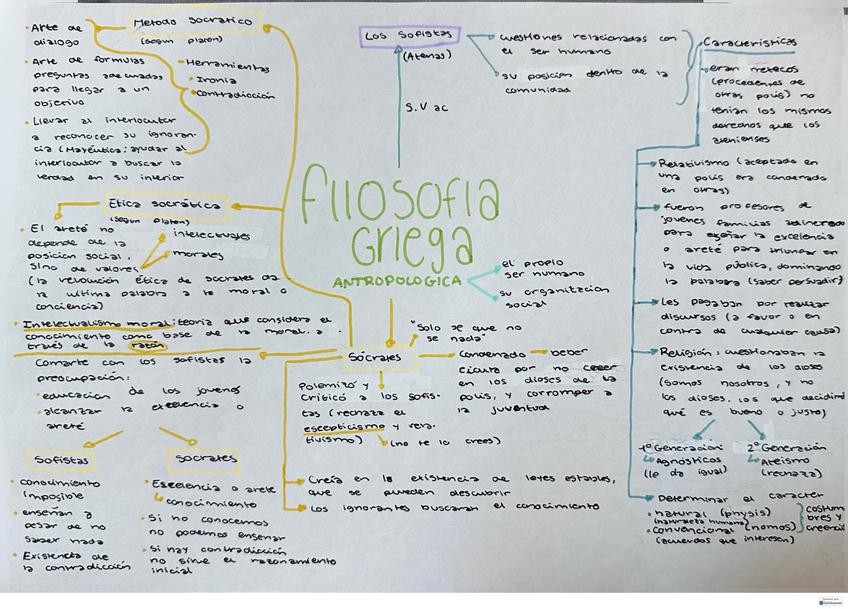 Método socrático
(según platón)
• Arte de
dialogo
• Arte de formulas
preguntas adecuadas
para llegar a un
objetivo
• Llevar al interlocutor
a reconocer su ignoran-
cia (Mayéutica: ayudar al
interlocutor a buscar la
verdad en su interior
• Herramientas
• Ironia
• contradicción
Ética socrática
(según platón)
• El areté no
depende de la
posicion social,
sino de valores
intelectuales
morales
(la revolución ética de socrates da
la ultima palabra a la moral o
conciencia)
• Intelectualismo moral: teoría que considera el
conocimiento como base de la moral a
través de la razón
Comarte con los sofistas la
preocupación:
• educacion de los jovenes
• alcanzar la excelencia o
areté
Sofistas
• conocimiento
imposible
• enseñan a
pesar de no
saber nada
• Existencia de
la contradicción
Socrates
• Excelencia o areté
conocimiento
• Si no conocemos
no podemos enseñar
• si hay contradicción
no sirve el razonamiento
inicial
Los Sofistas
(Atenas)
S.V ac
cuestiones relacionadas con
el ser humano
su posicion dentro de la
comunidad
filosofia
Griega
ANTROPOLOGICA
el propio
ser humano
su organizacion
social
SÓCRATES
"Solo se que no
se nada"
Condenado beber
cicuta por no creer
en los dioses de la
polis, y corromper a
la juventud
Polemizó y
criticó a los sofis-
tas (rechaza el
escepticismo y rela-
tivismo)
(no te lo crees)
Creía en la existencia de leyes estables,
que se pueden descubrir
Los ignorantes buscaran el conocimiento
Características
eran metecos
(procedentes de
otras polis) no
tenian los mismos
derechos que los
atenienses
Relativismo (aceptado en
una polis era condenado
en otras)
fueron profesores de
jovenes familias adinerada
para eseñar la excelencia
o areté para triunfar en
la vida pública, dominando
la palabra (saber persuadir)
Les pagaban por realizar
discursos (a favor o en
contra de cualquier causa)
Religión: cuestionaban la
existencia de los dioses
(somos nosotros, y no
los dioses, los que decidimos
qué es bueno o justo)
1º Generación
Agnósticos
(le da igual)
2º Generación
Ateismo
(rechaza)
Determinar el carácter
• natural (physis)
(naturaleza humana)
• convencional (nomos)
(acuerdos que interesen)
costum
bres y
creenci
CamScanner